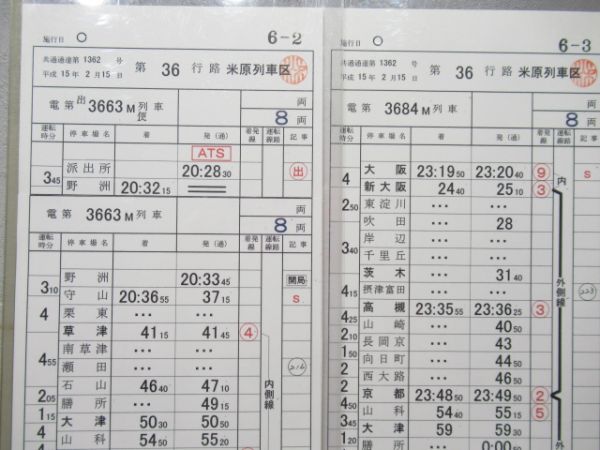 施行日 ○ 6-2
共通通達第 1362 号
平成 15年 2月15日 第 36 行路 米原列車区
電 第 出 3663 M 列車 便 両
8 両
運転時分 停車場名 着 発(通) 着発線 運転線路 記事
ATS
派出所 20:28 30 出
3 45 野洲 20:32 15
電 第 3663 M 列車 両
8 両
運転時分 停車場名 着 発(通) 着発線 運転線路 記事
野洲 20:33 45 開局
3 10 守山 20:36 55 37 15 S
4 栗東 … …
草津 41 15 41 45 ④
南草津 … …
4 55 瀬田 … … 216
石山 46 40 47 10 内側線
2 05 膳所 … 49 15
1 15 大津 50 30 50 50
4 山科 54 50 55 20
4
施行日 ○ 6-3
共通通達第 1362 号
平成 15年 2月15日 第 36 行路 米原列車区
電 第 3684 M 列車 両
8 両
運転時分 停車場名 着 発(通) 着発線 運転線路 記事
大阪 23:19 50 23:20 40 ⑨ 内 S
4 新大阪 24 40 25 10 ③
2 50 東淀川 … …
吹田 … 28
3 40 岸辺 … …
千里丘 … …
茨木 … 31 40 外側線
4 15 摂津富田 … … 223
高槻 23:35 55 23:36 25 ③
4 25 山崎 … 40 50
2 10 長岡京 … 43
1 50 向日町 … 44 50
2 西大路 … 46 50
2 京都 23:48 50 23:49 50 ②
4 50 山科 54 40 55 15 ⑤
3 45 大津 59 59 30 外側線
1 20 膳所 … 0:00 50